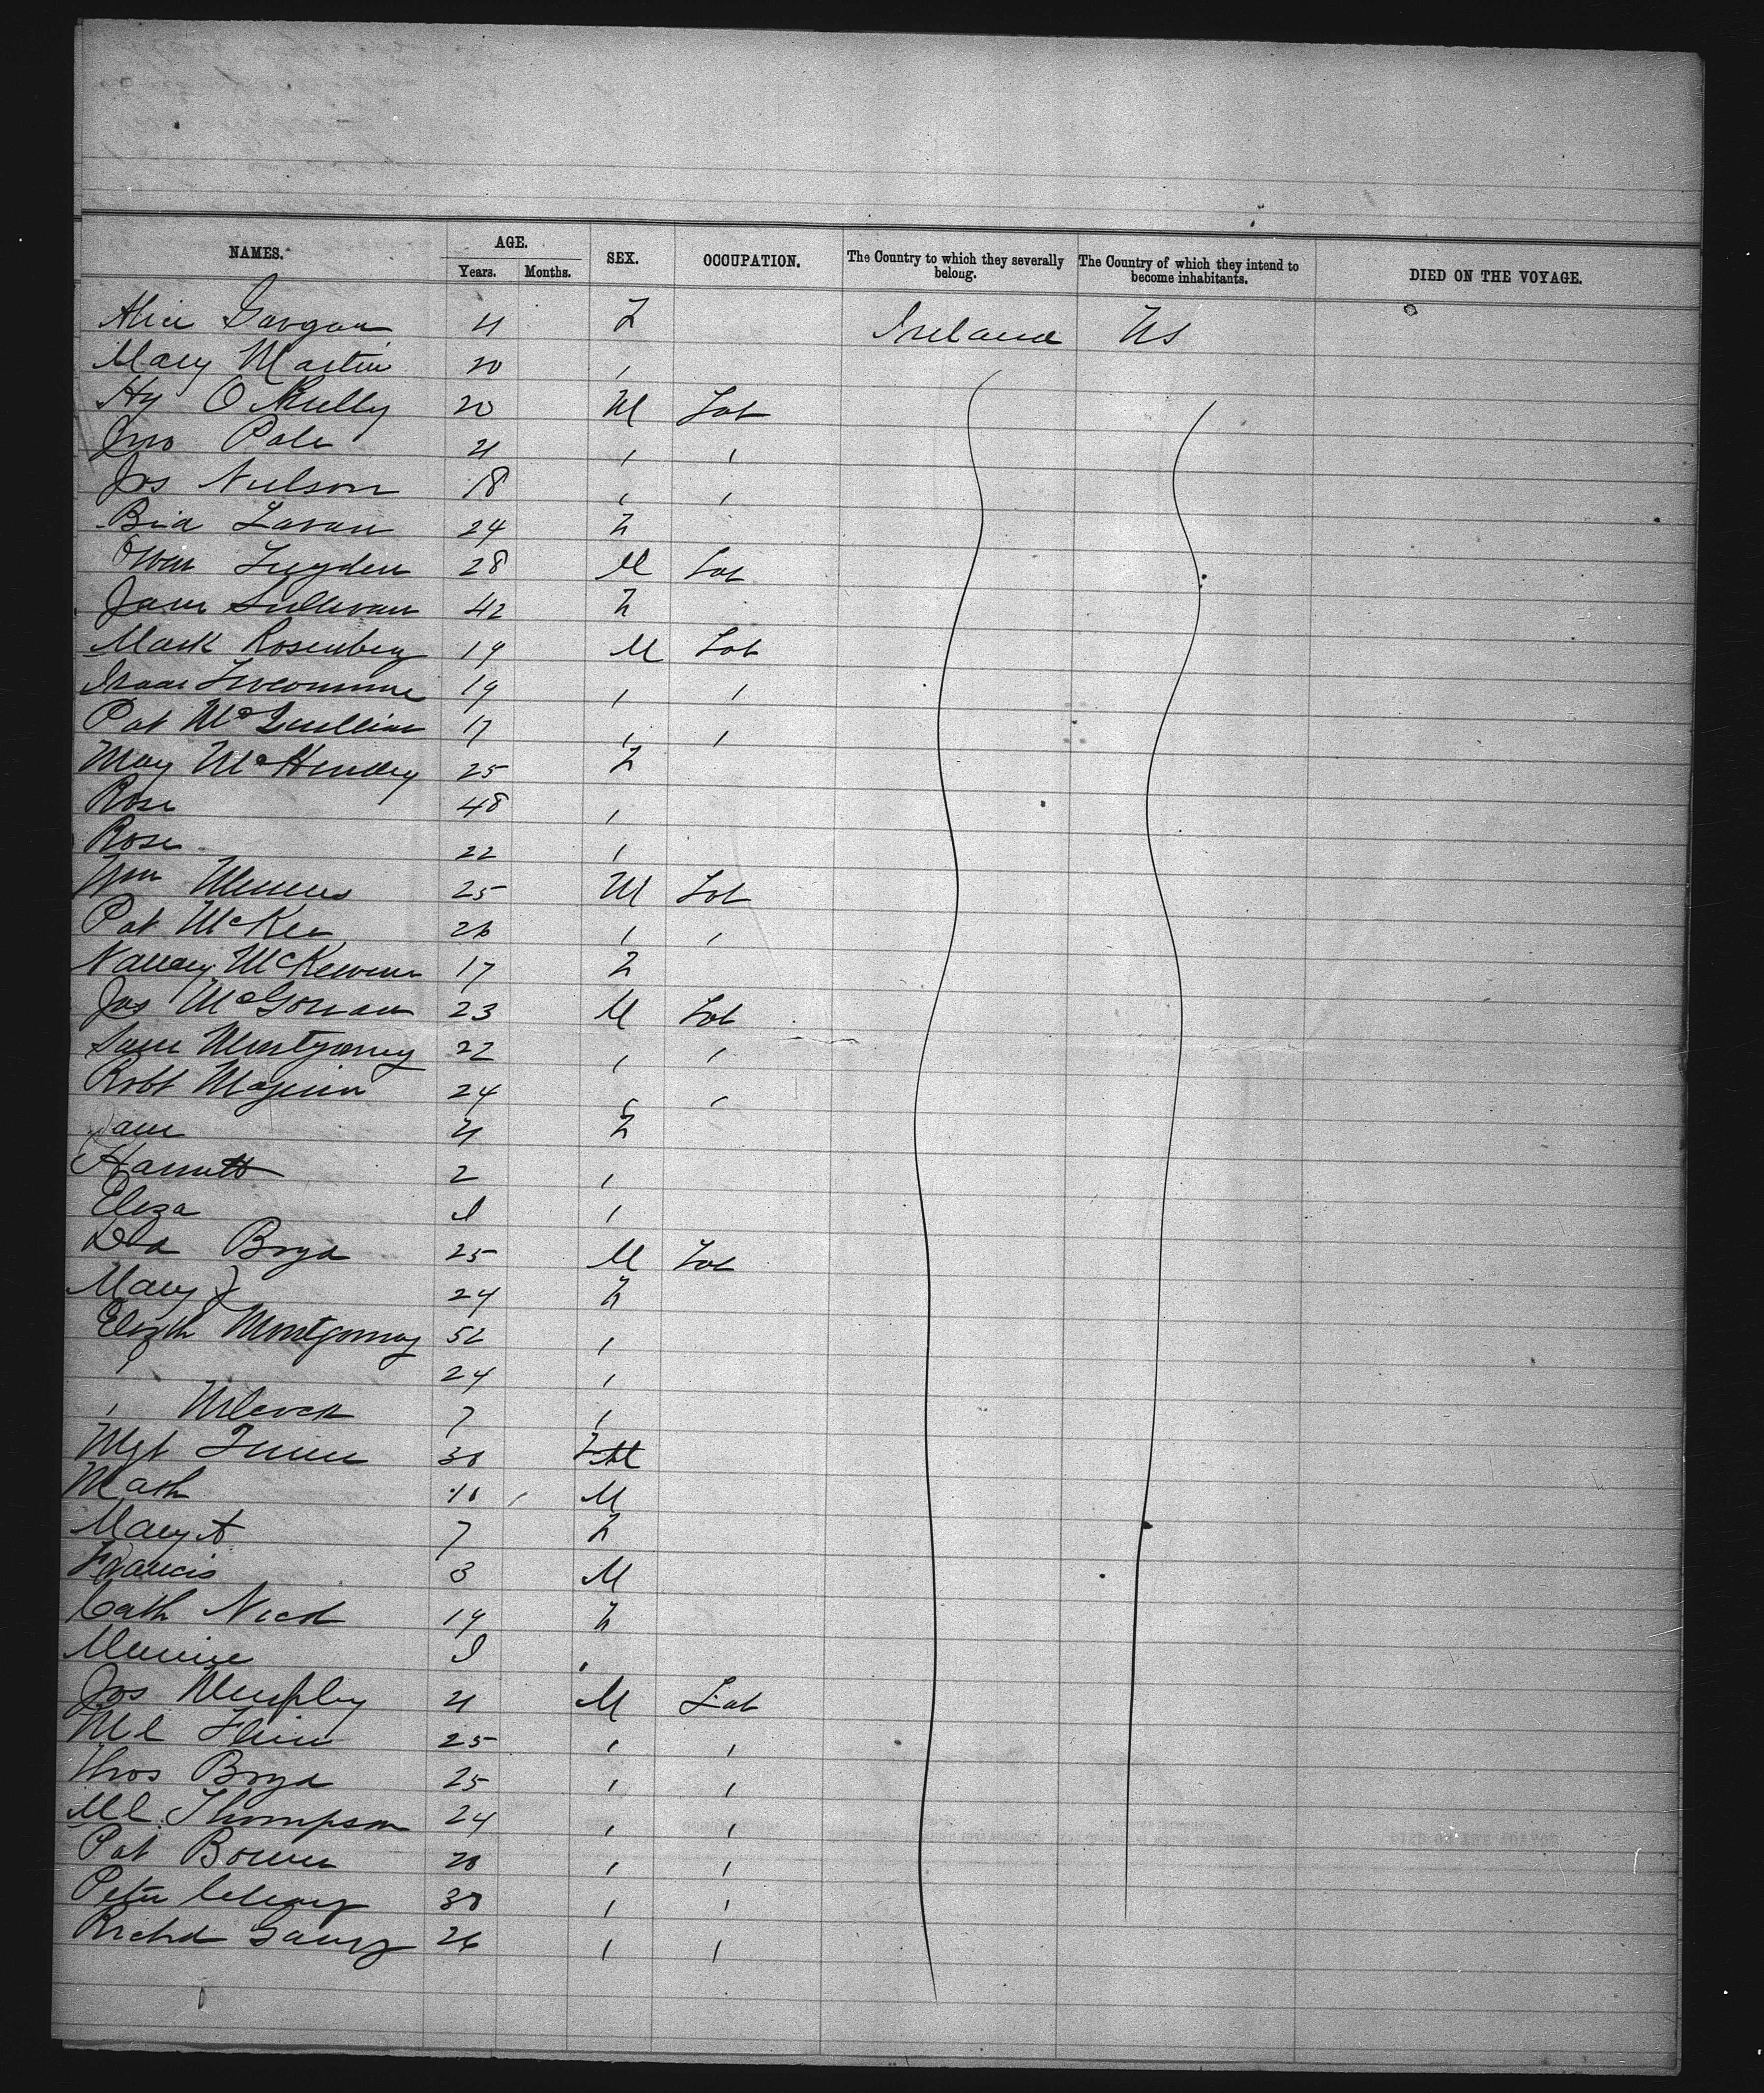 NAMES. AGE. SEX. OCCUPATION. The Country to which they severally belong. The Country of which they intend to become inhabitants. DIED ON THE VOYAGE.
Years. Months.
Alice Gargan 21 F Ireland US
Mary Martin 20 "
Hy O Reilly 20 M Lab
Jno Pole 21 " "
Jos Nelson 18 " "
Brid Lavan 24 F
Owen Luyden 28 M Lab
Jane Sullivan 42 F
Mark Rosenberg 19 M Lab
Isaac 19 " "
Pat McQuillian 17 " "
May McHendry 25 F
Rose 48 "
Rose 22 "
Wm 25 M Lab
Pat McKee 26 " "
Nancy McKeown 17 F
Jas McGowan 23 M Lab
Saml Montgomery 22 " "
Robt Maginn 24 " "
Jane 21 F
Harriett 2 "
Eliza "
Dd Boyd 25 M Lab
Mary J 24 F
Elizth Montgomery 52 "
" 24 "
" 7 "
Mgt 30 F M
Math M
Mary A 7 F
Francis 3 M
Cath 19 F
Minnie "
Jos Murphy 21 M Lab
Ml Flinn 25 " "
Thos Boyd 25 " "
Ml Thompson 24 " "
Pat Bowen 20 " "
Peter 30 " "
Richd 26 " "